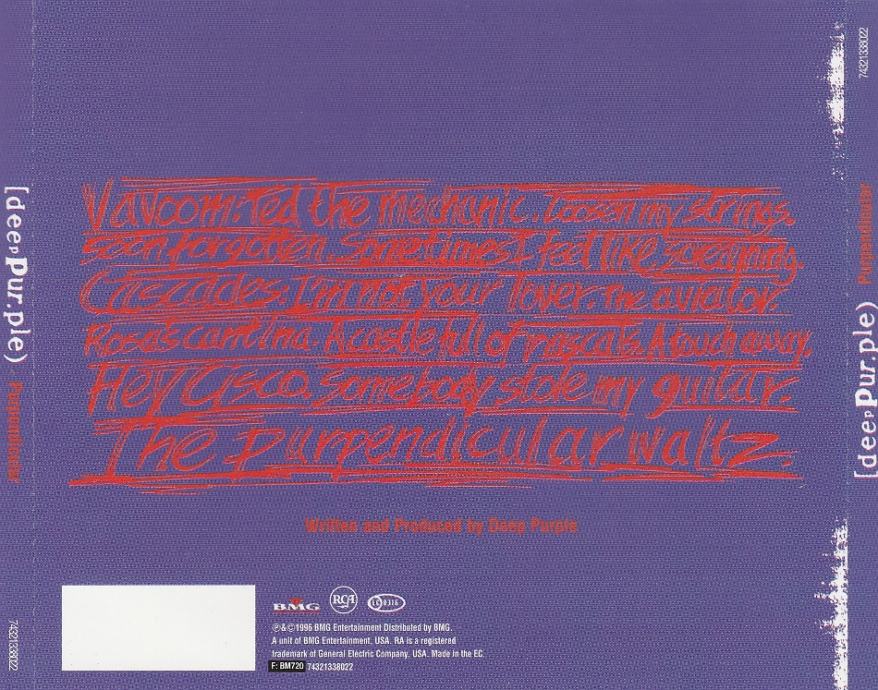 Vavoom: Ted the mechanic. Loosen my strings.
Soon forgotten. Sometimes I feel like screaming.
Cascades: I'm not your lover. The aviator.
Rosa's cantina. A castle full of rascals. A touch away.
Hey Cisco. Somebody stole my guitar.
The purpendicular waltz.
Written and Produced by Deep Purple
BMG RCA
℗&©1996 BMG Entertainment Distributed by BMG.
A unit of BMG Entertainment, USA. RA is a registered
trademark of General Electric Company, USA. Made in the EC
F: BM720 74321338022
[deep Pur.ple) Purpendicular
74321338022
74321338022
Purpendicular
[deep Pur.ple)